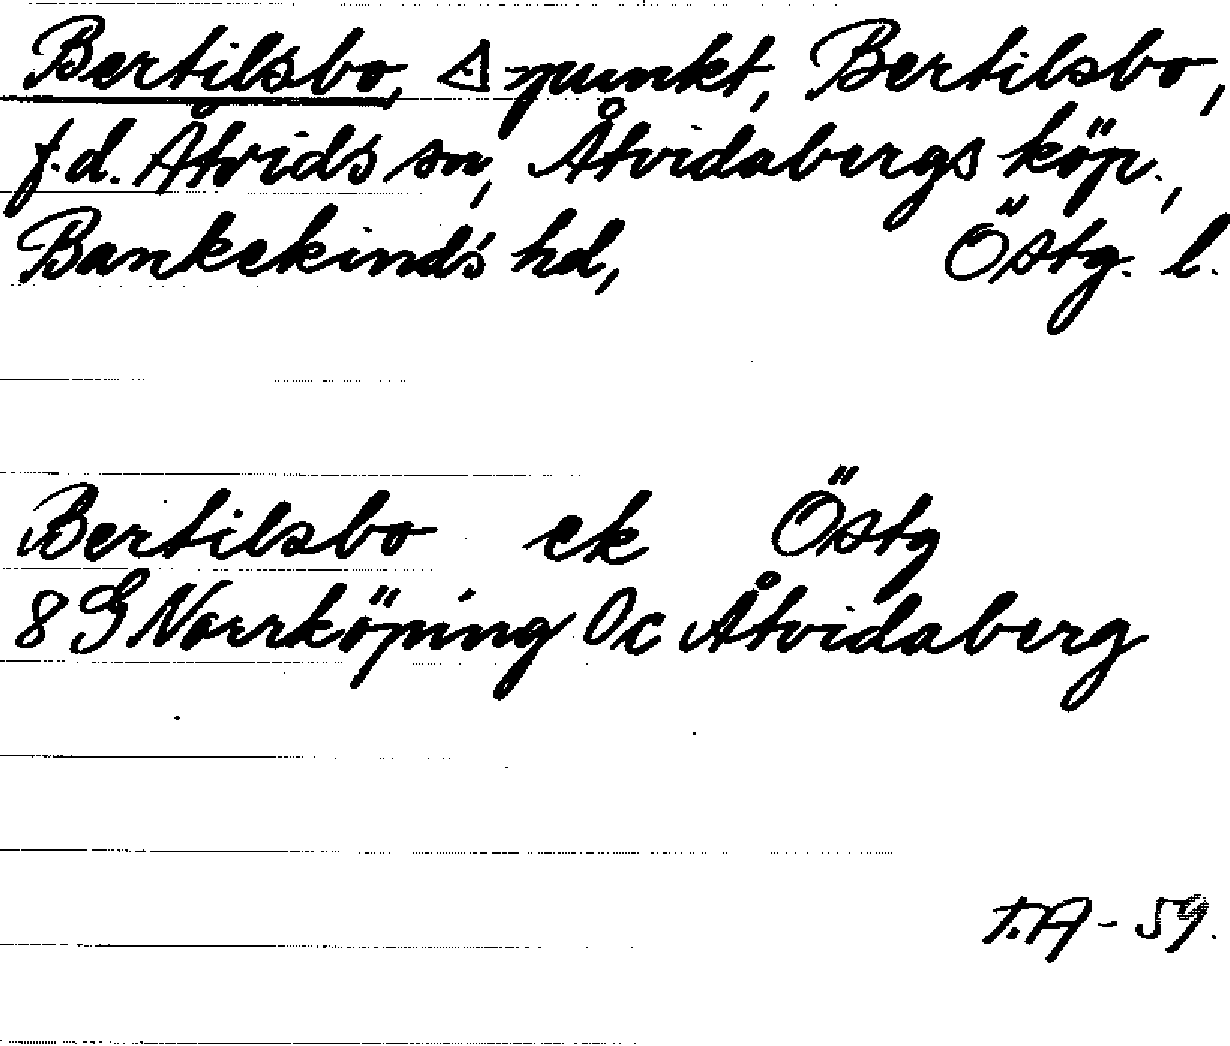 Bertilsbo, △-punkt, Bertilsbo,
f.d. Åtvids sn, Åtvidabergs köp.,
Bankekinds hd, Östg. l.
Bertilsbo ek Östg
8G Norrköping 0c Åtvidaberg
T.A - 59.